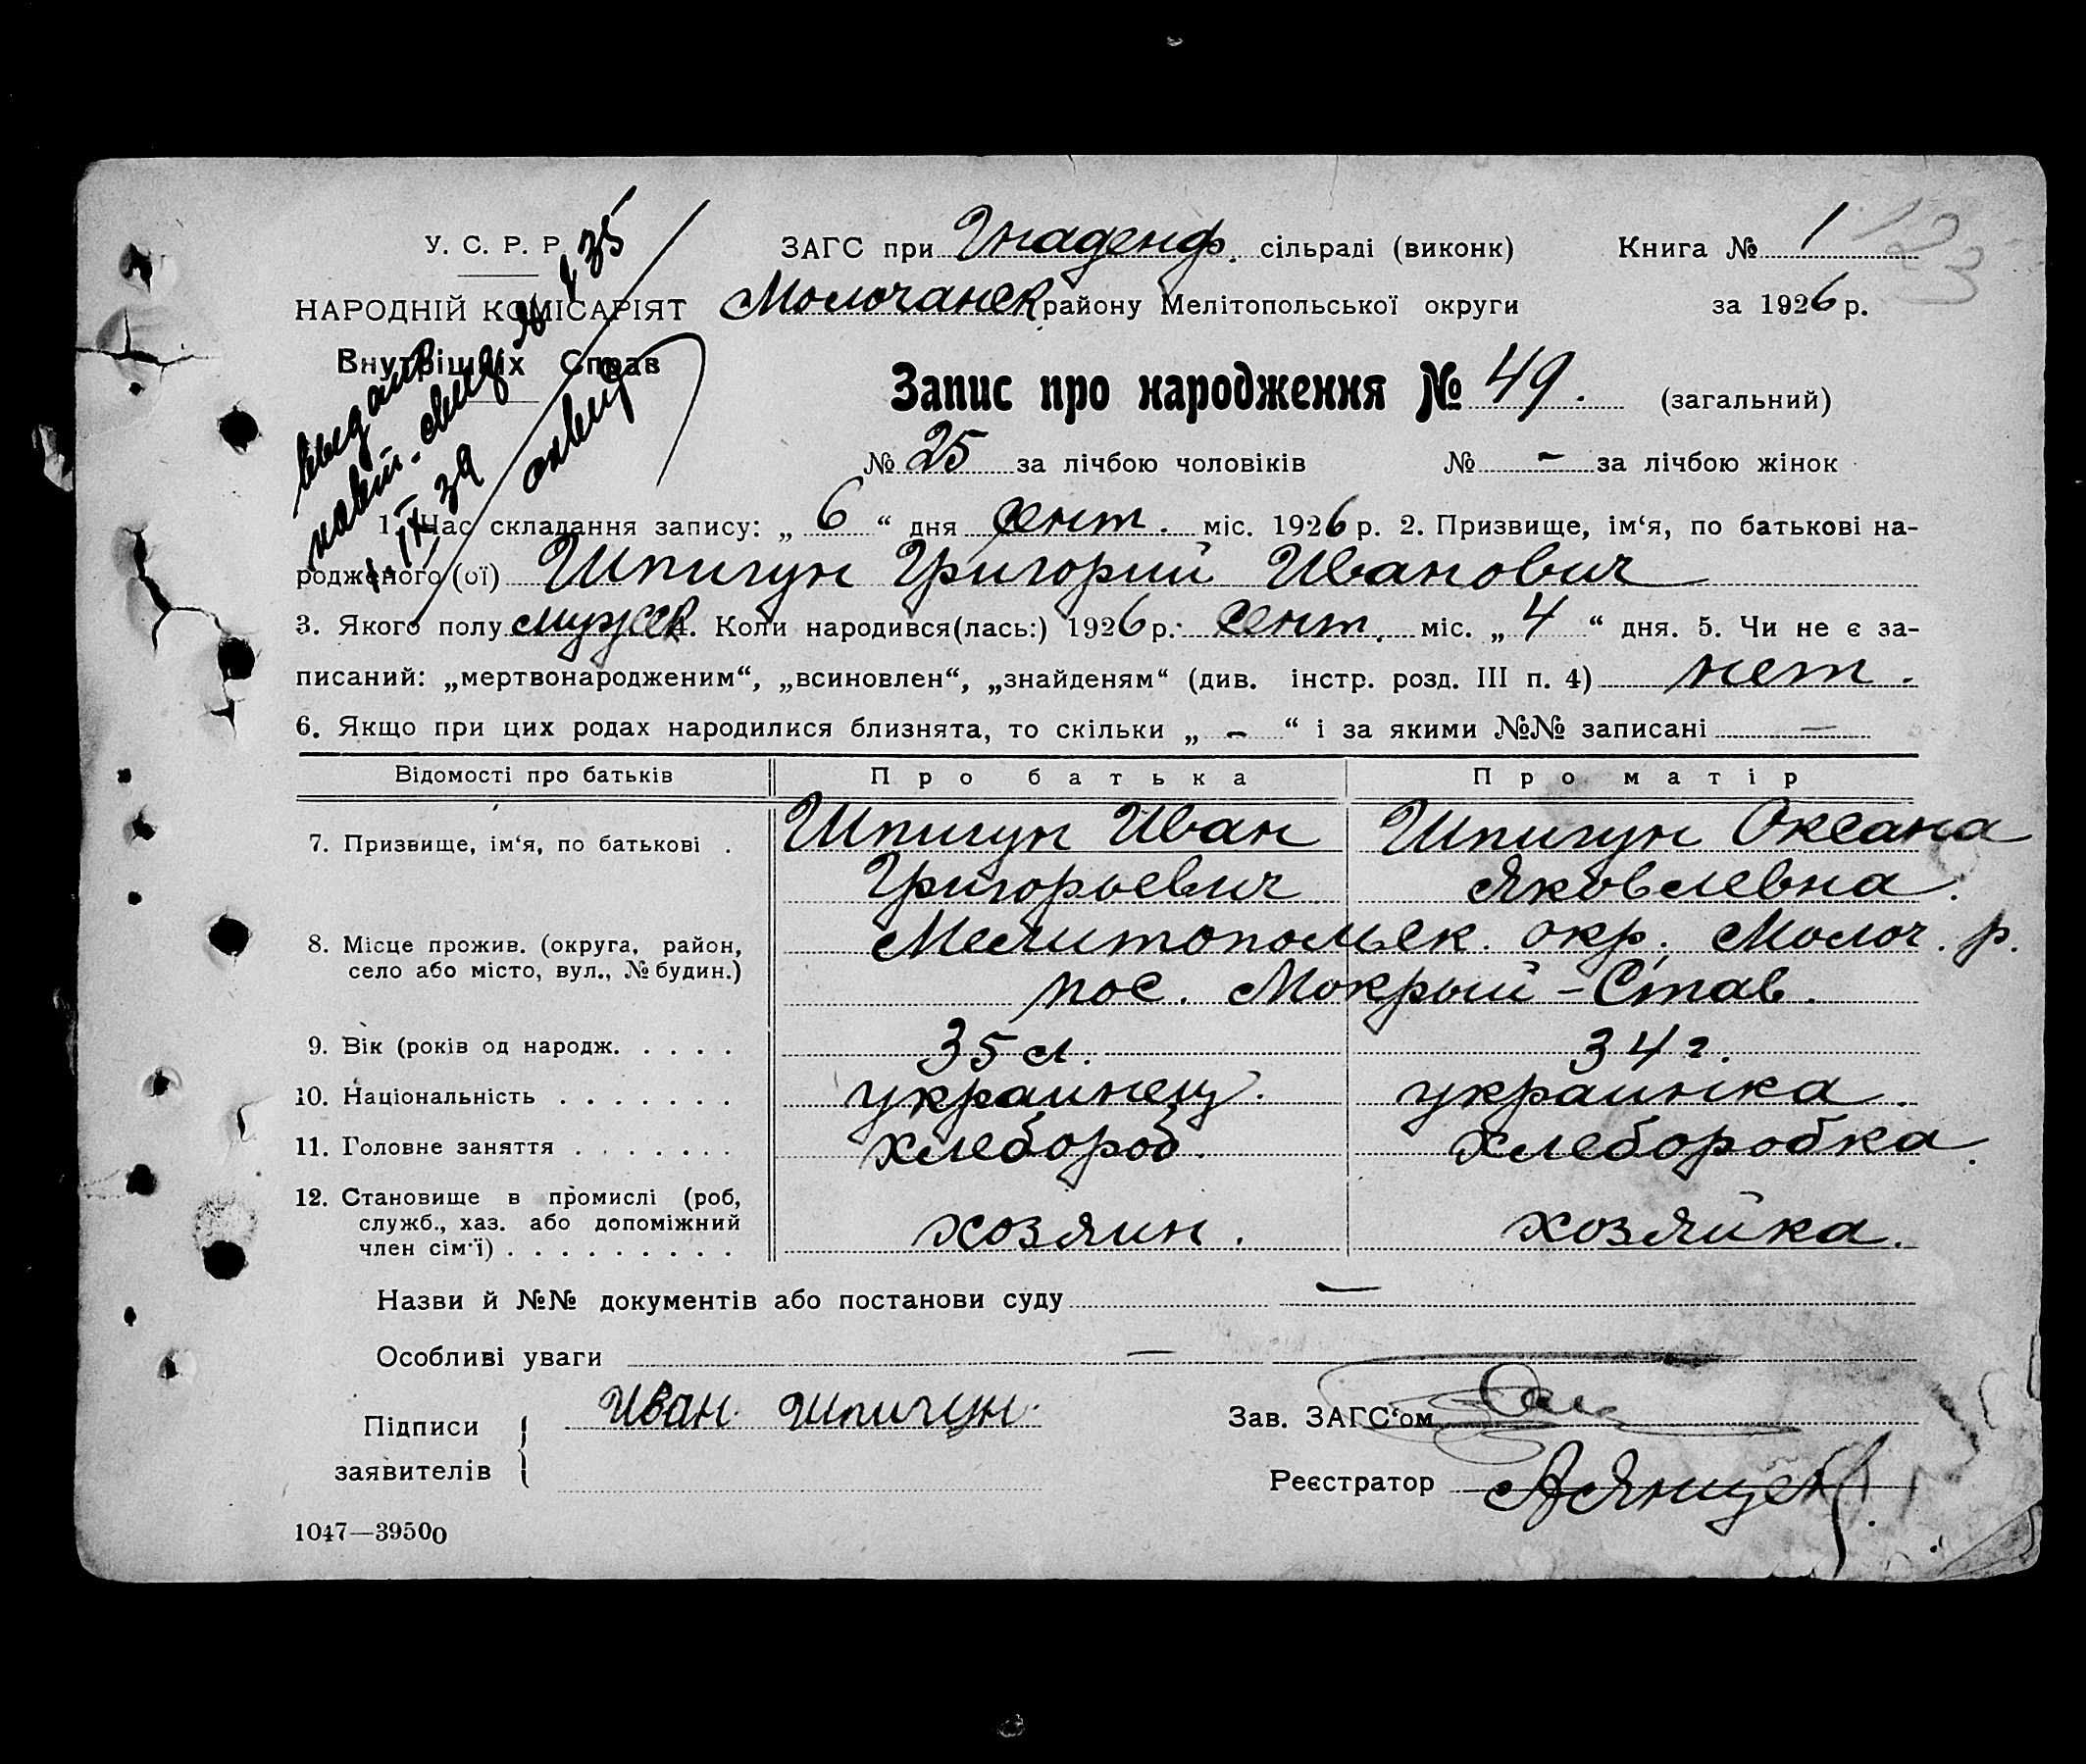 У. С. Р. Р.
НАРОДНІЙ КОМІСАРІЯТ
Внутрішніх Справ
выдано
1 IX 39
ЗАГС при Гнаденф. сільраді (виконк)
Книга № 1
123
Молочанск району Мелітопольської округи
за 1926 р.
Запис про народження № 49. (загальний)
№ 25 за лічбою чоловіків № - за лічбою жінок
1. Час складання запису: „ 6 “ дня сент. міс. 1926 р. 2. Призвище, ім‘я, по батькові на-
родженого (ої) Шпигун Григорий Иванович
3. Якого полу мужск 4. Коли народився(лась:) 1926 р. сент. міс. „ 4 “ дня. 5. Чи не є за-
писаний: „мертвонародженим“, „всиновлен“, „знайденям“ (див. інстр. розд. III п. 4) нет.
6. Якщо при цих родах народилися близнята, то скільки „ - “ і за якими №№ записані —
Відомості про батьків Про батька Про матір
7. Призвище, ім‘я, по батькові . Шпигун Иван Шпигун Оксана
Григорьевич Яковлевна.
8. Місце прожив. (округа, район, Мелитопольск. окр. Молоч. р.
село або місто, вул., № будин.) пос. Мокрый-Став.
9. Вік (років од народж. . . . . 35 л. 34 г.
10. Національність . . . . . . . украинец. украинка.
11. Головне заняття . . . . . . . хлебороб. хлеборобка.
12. Становище в промислі (роб,
служб., хаз. або допоміжний
член сім‘ї) . . . . . . . . . хозяин. хозяйка.
Назви й №№ документів або постанови суду —
Особливі уваги —
Підписи
заявителів
Иван Шпигун.
Зав. ЗАГС‘ом
Реєстратор
1047—39500